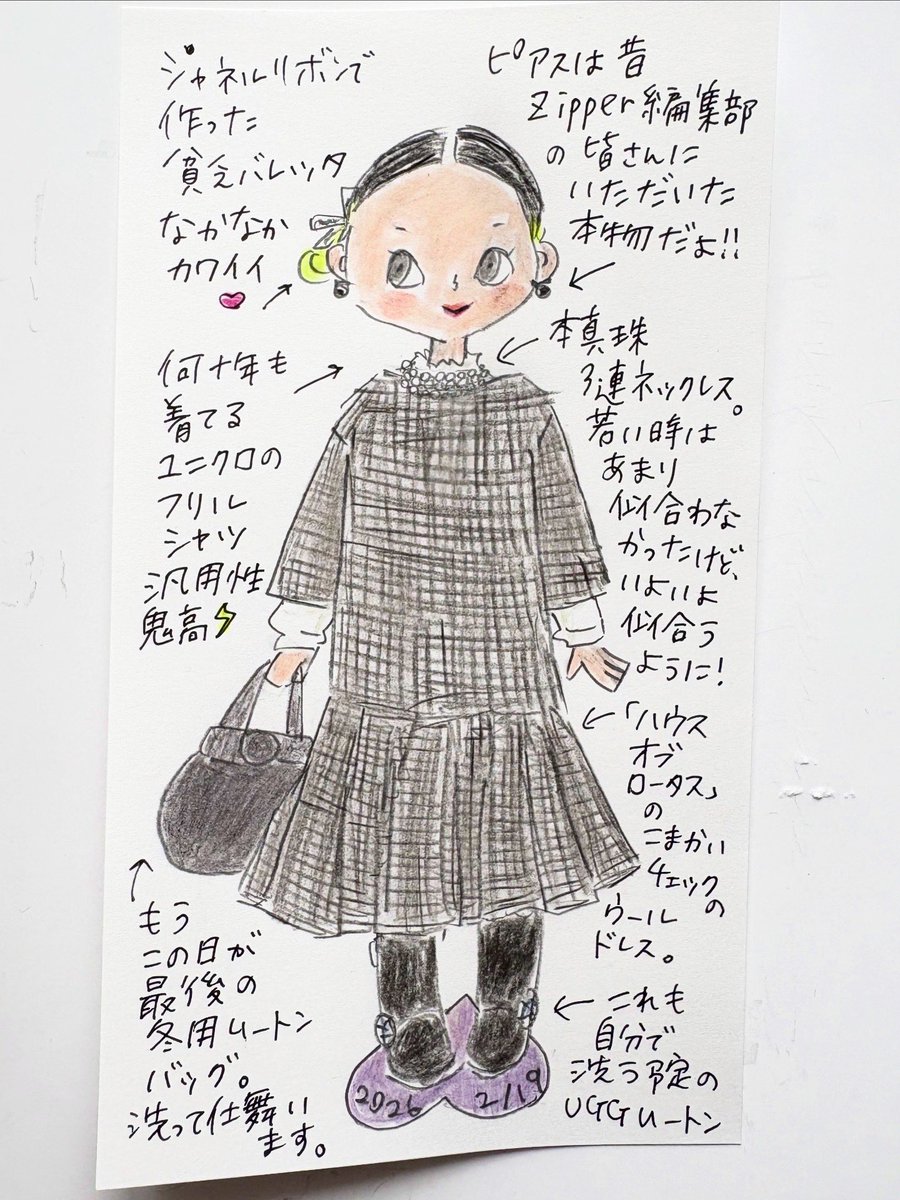 シャネルリボンで
作った
貧乏バレッタ
なかなか
カワイイ
ピアスは昔
Zipper編集部
の皆さんに
いただいた
本物だよ!!
何十年も
着てる
ユニクロの
フリル
シャツ
汎用性
鬼高
本真珠
3連ネックレス。
若い時は
あまり
似合わな
かったけど、
いよいよ
似合う
ように!
「ハウス
オブ
ロータス」
の
こまかい
チェックの
ウール
ドレス。
もう
この日が
最後の
冬用ムートン
バッグ。
洗って仕舞い
ます。
これも
自分で
洗う予定の
UGGムートン
2026 2/19